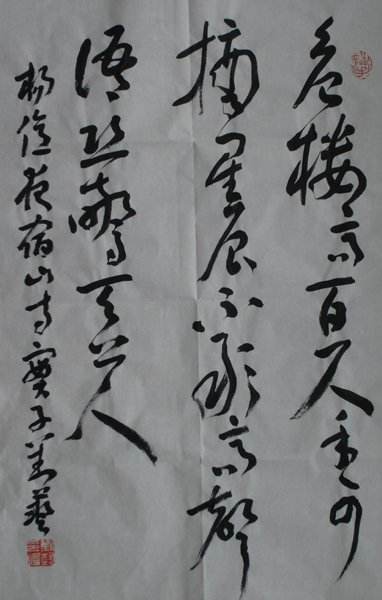 危楼高百尺手可
摘星辰不敢高聲
語恐驚天上人
杨億夜宿山寺